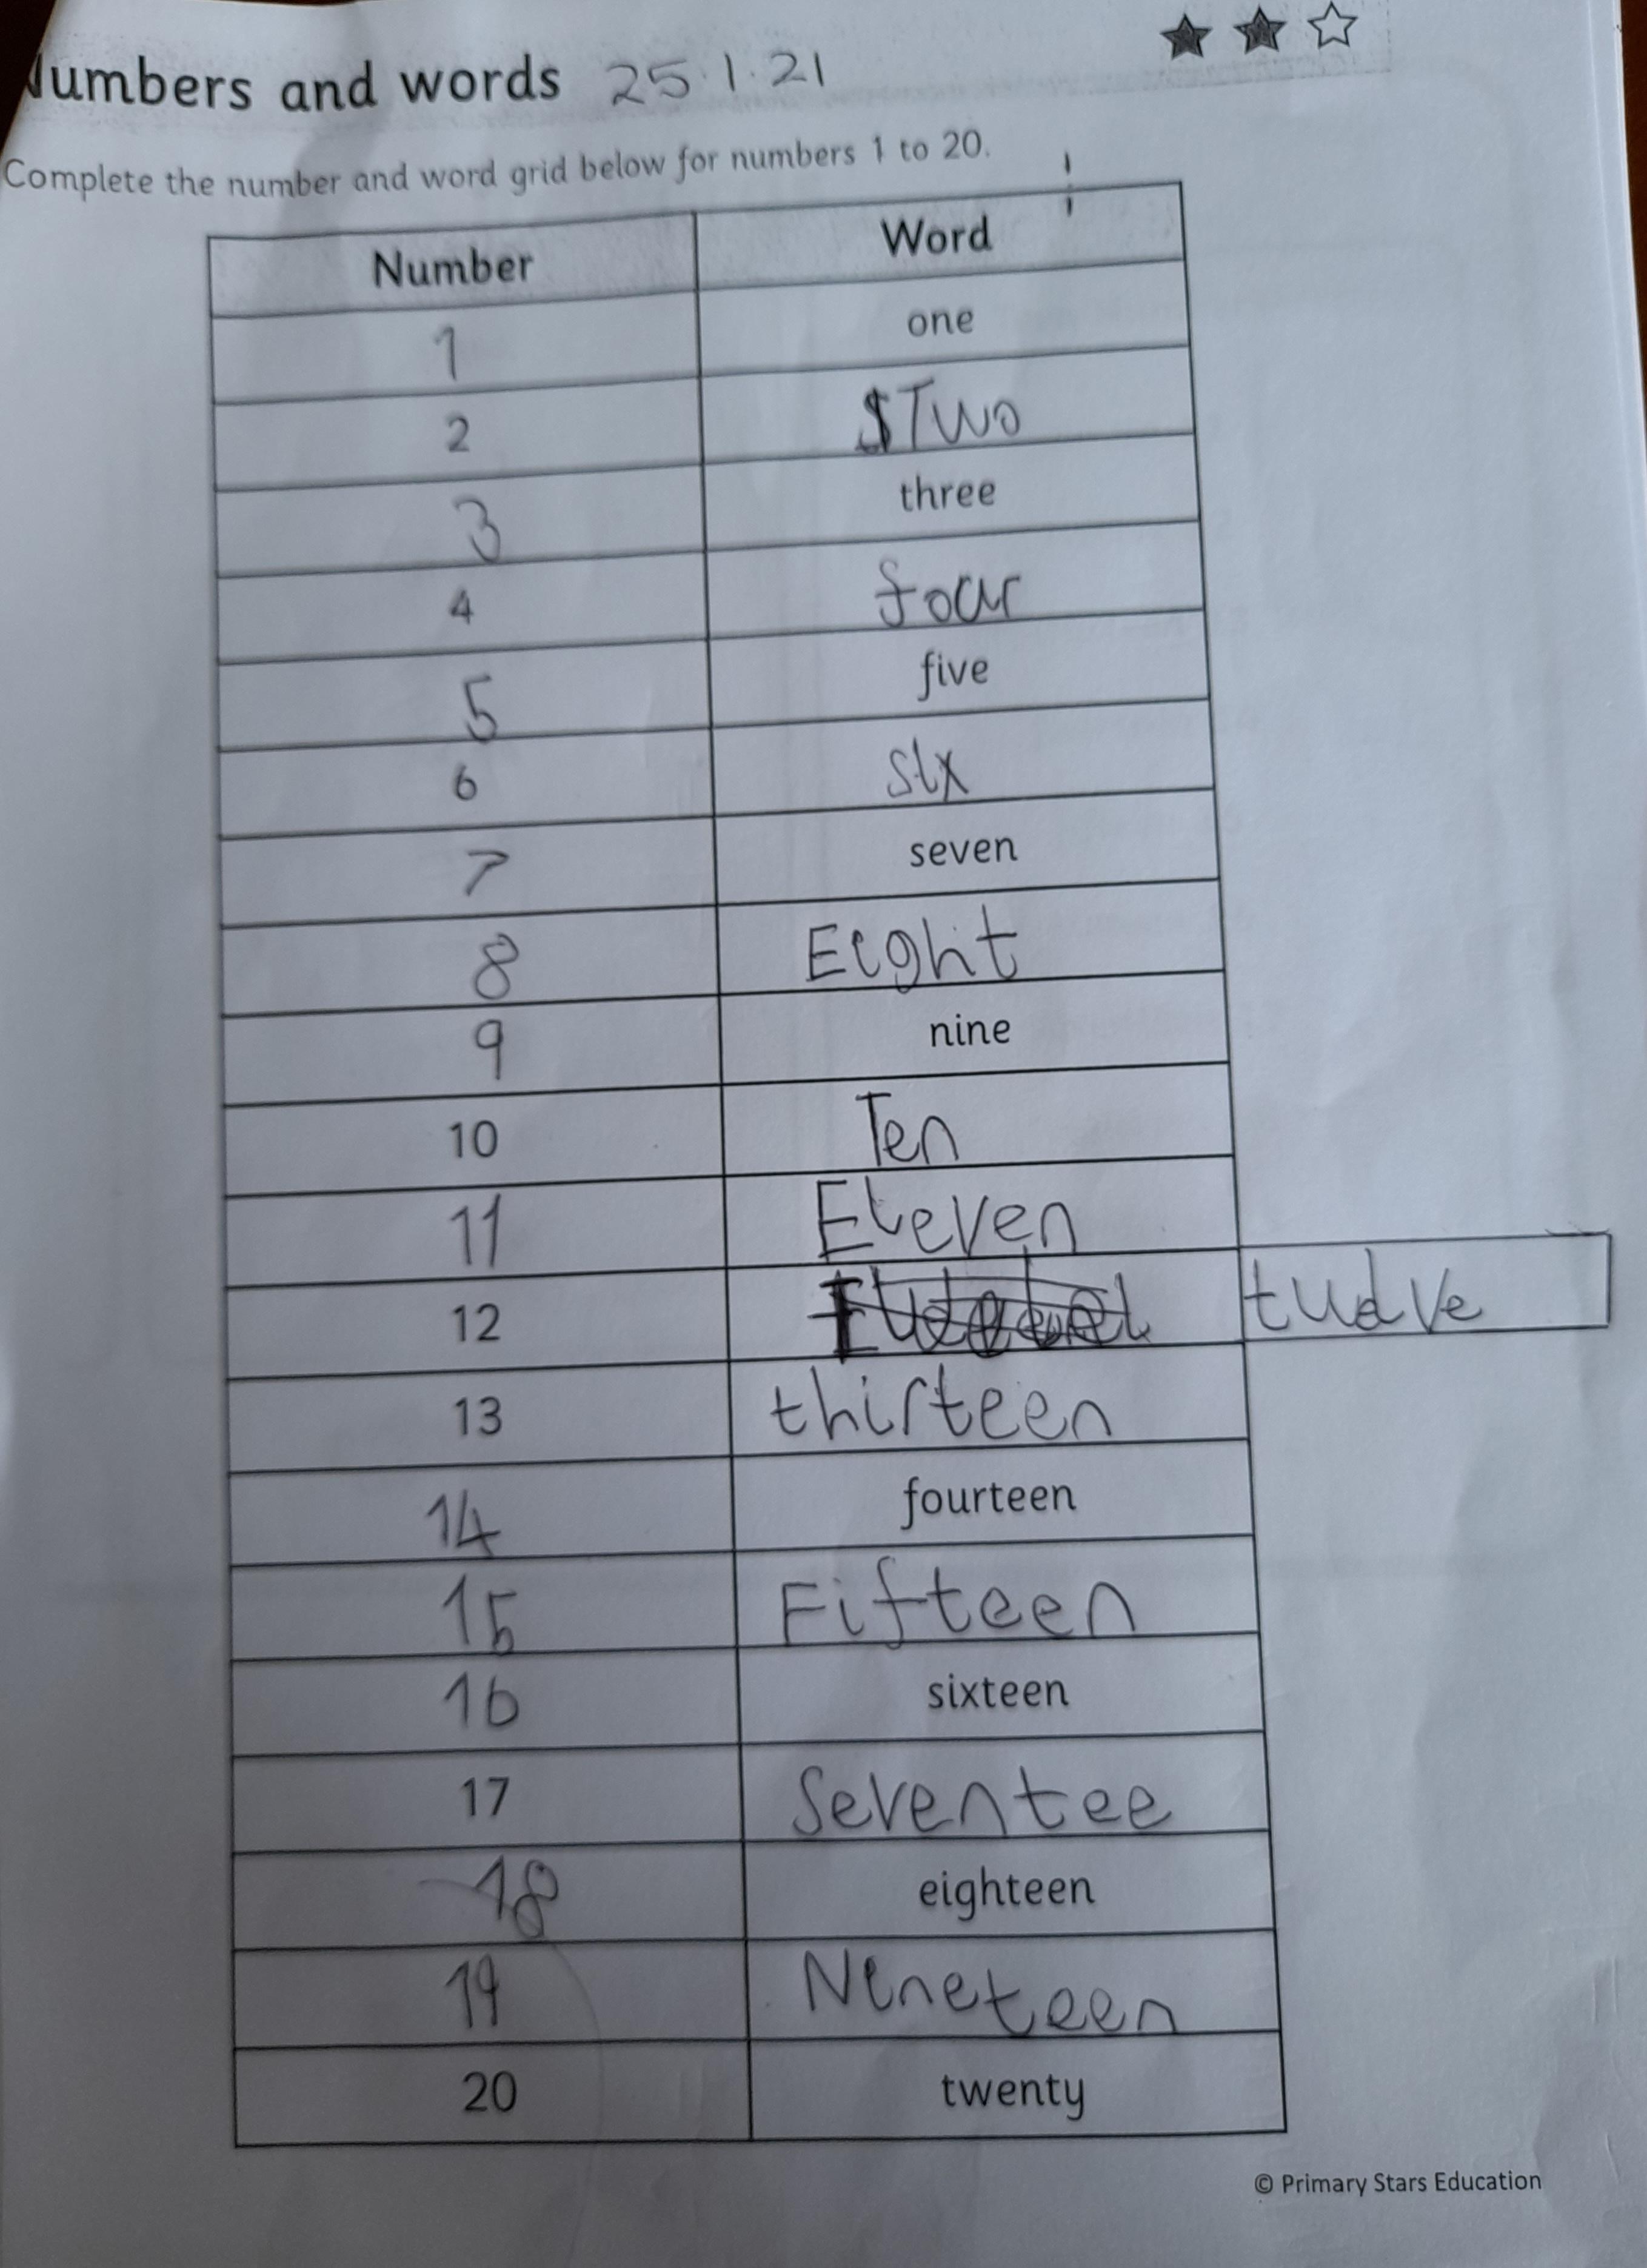 Numbers and words 25.1.21
Complete the number and word grid below for numbers 1 to 20.
Number Word
1 one
2 Two
3 three
4 four
5 five
6 six
7 seven
8 Eight
9 nine
10 Ten
11 Eleven
12 twelve
13 thirteen
14 fourteen
15 Fifteen
16 sixteen
17 Seventee
18 eighteen
19 Nineteen
20 twenty
© Primary Stars Education